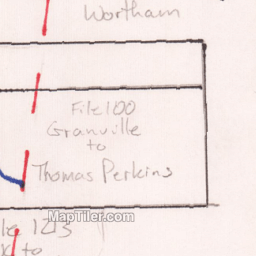 Wortham
File 100
Granville
to
Thomas Perkins
1213
MapTiler.com
to